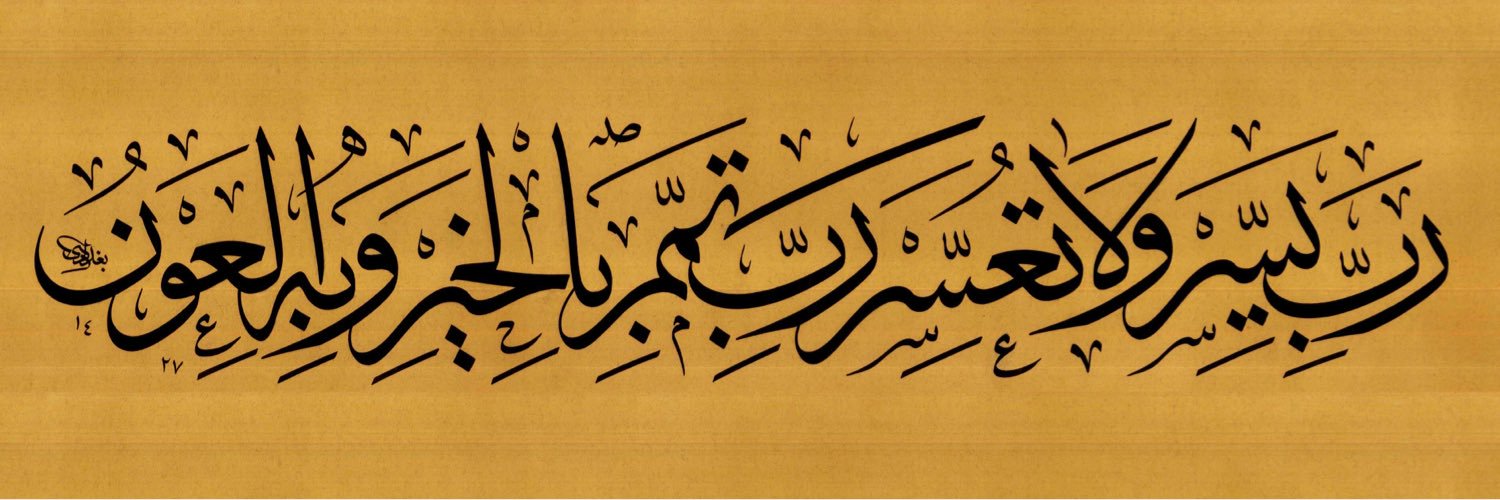 رَبِّ يَسِّرْ وَلَا تُعَسِّرْ رَبِّ تَمِّمْ بِالْخَيْرِ وَبِهِ الْعَوْنُ
١٤٢٧